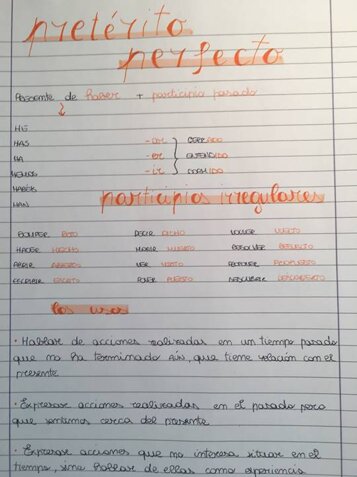 pretérito
perfecto
Presente de haber + participio pasado
HE
HAS -ar CERRADO
HA -er ENTENDIDO
HEMOS -ir COMIDO
HABÉIS
HAN
participios irregulares
ROMPER ROTO DECIR DICHO VOLVER VUELTO
HACER HECHO MORIR MUERTO RESOLVER RESUELTO
ABRIR ABIERTO VER VISTO
ESCRIBIR ESCRITO PONER PUESTO DESCUBRIR DESCUBIERTO
los usos
· Hablar de acciones realizadas en un tiempo pasado
que no ha terminado aún, que tiene relación con el
presente
· Expresar acciones realizadas en el pasado pero
que sentimos cerca del presente
· Expresar acciones que no interesa situar en el
tiempo, sino hablar de ellas como experiencia